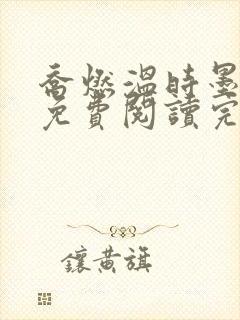 喬燃溫時墨
免費閱讀完
鑲黃旗